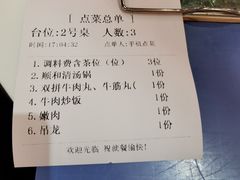 [ 点菜总单 ]
台位:2号桌 人数:3
时间:17:04:32 点单人:手机点菜
1. 调料费含茶位（位） 3位
2. 顺和清汤锅 1份
3. 双拼牛肉丸、牛筋丸( 1份
4. 牛肉炒饭 1份
5. 嫩肉 1份
6. 吊龙 1份
欢迎光临 祝就餐愉快!